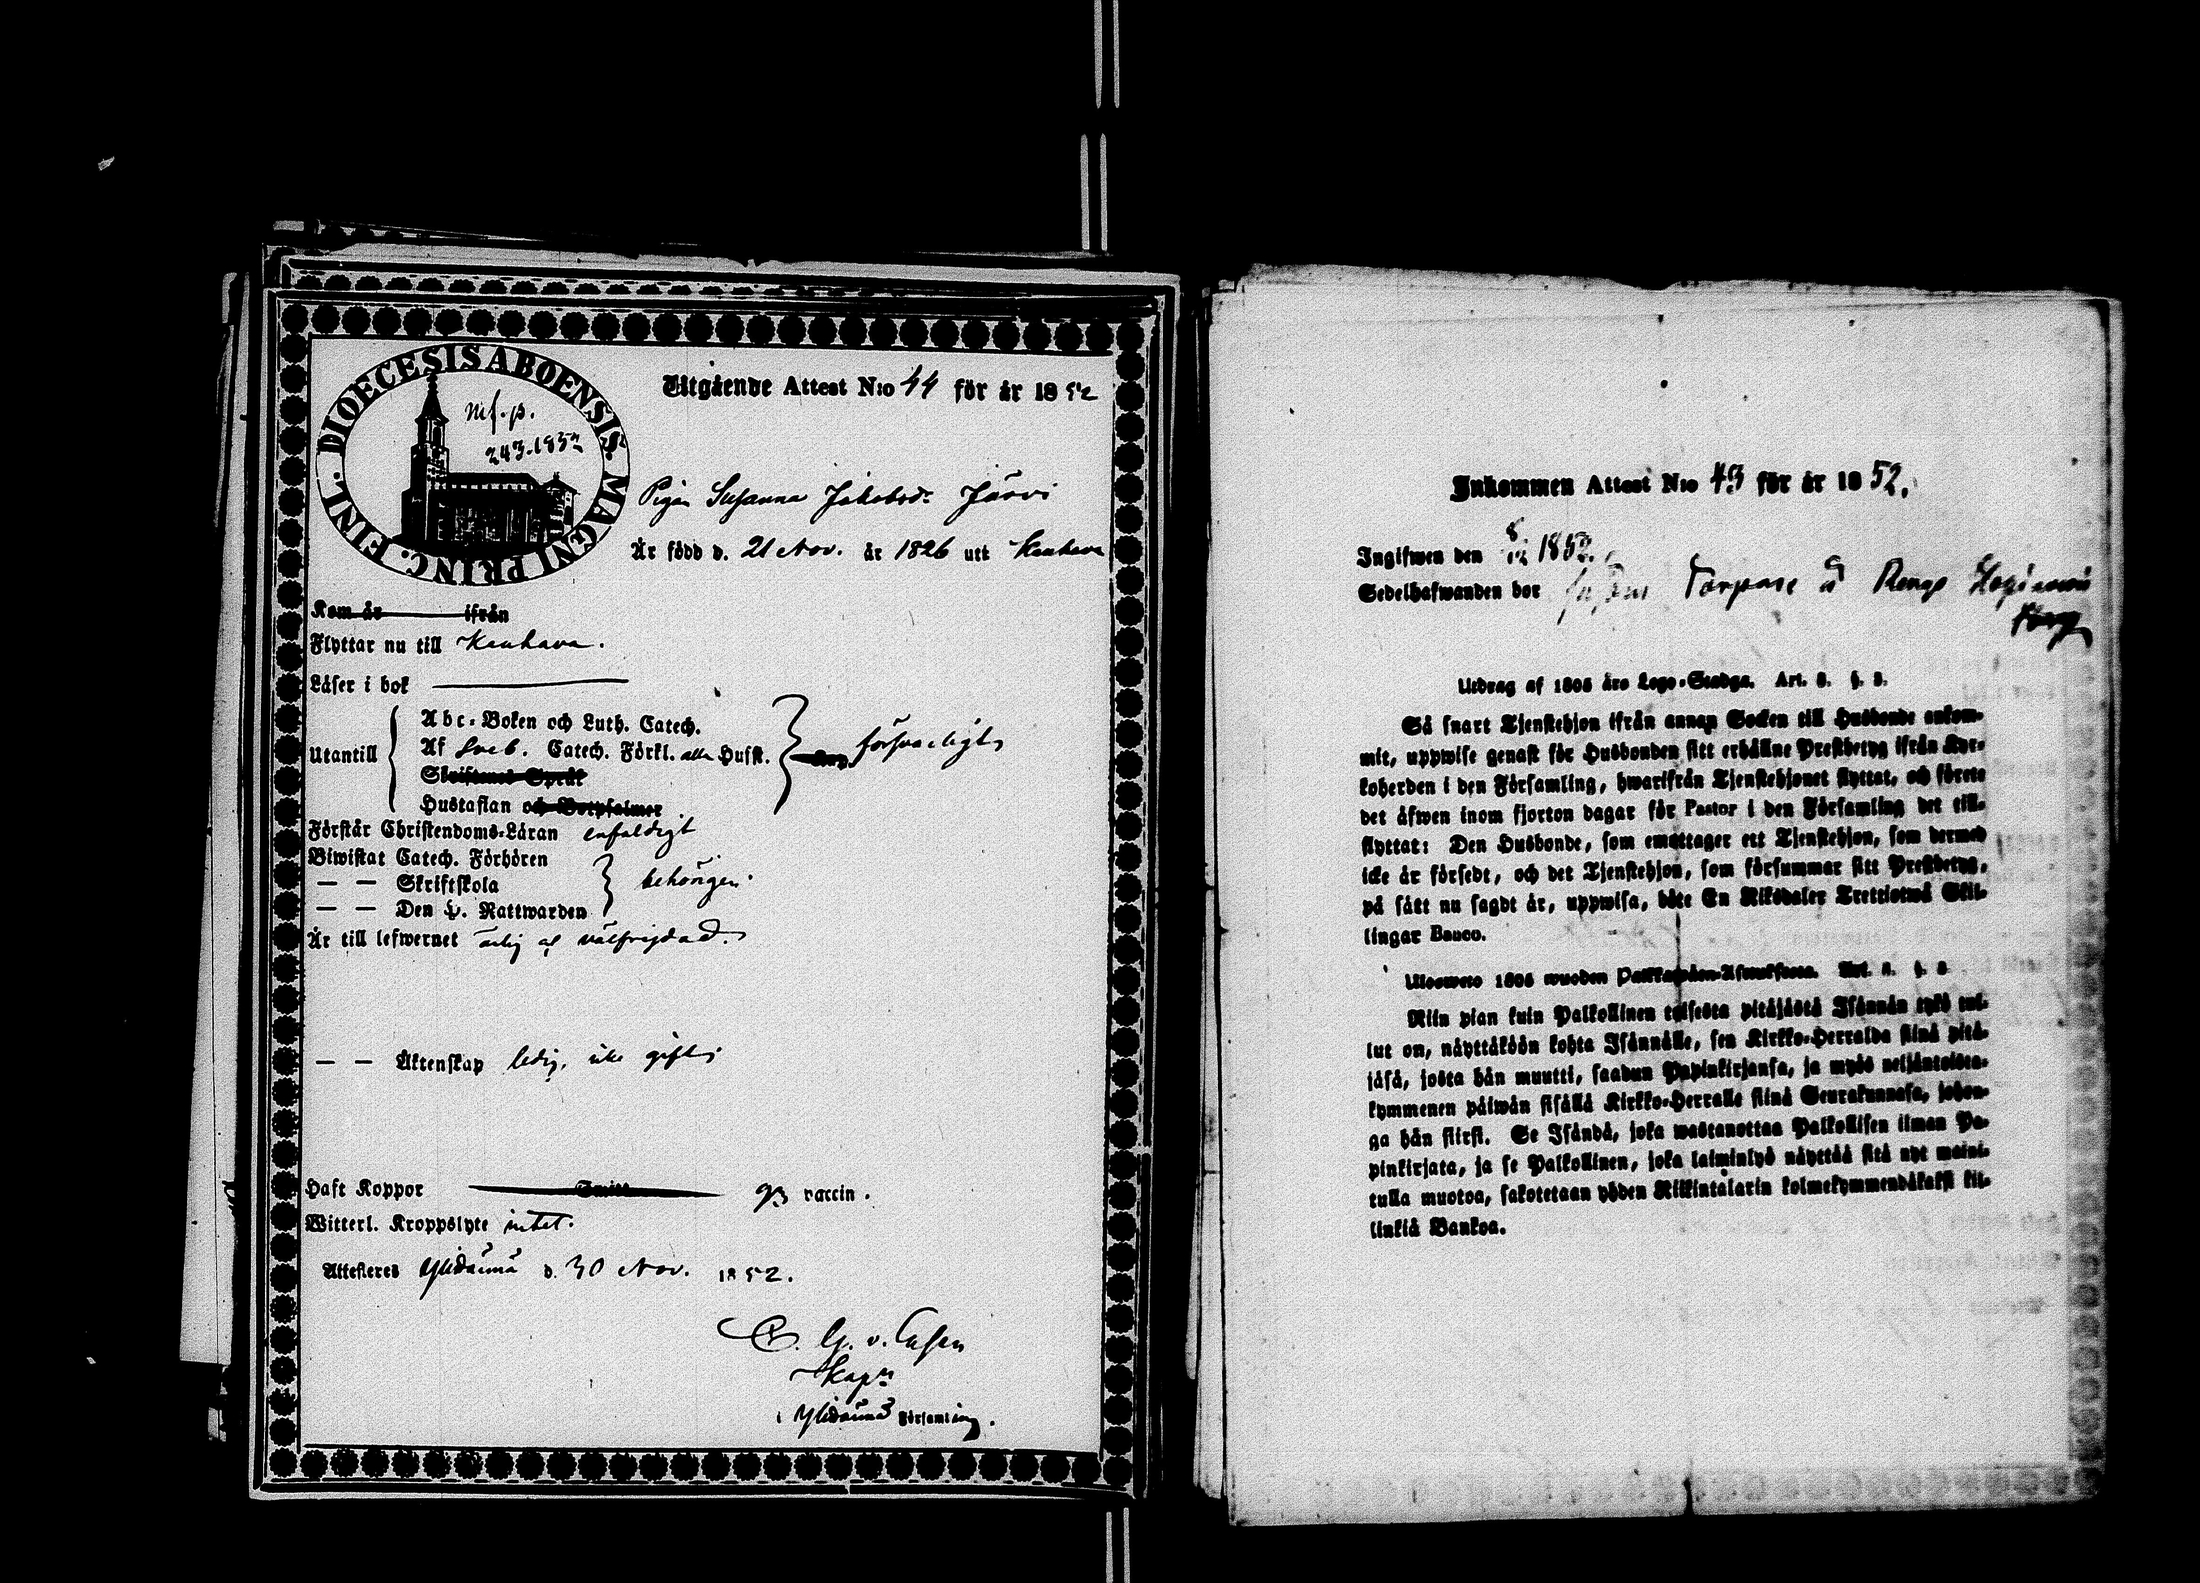 DIOECESIS ABOENSIS. MAGNI PRINC. FINL.
mf. p.
243-1852
Utgående Attest N:o 44 för år 1852
Pigan Susanna Jakobsd:r Järvi
Är född d. 21 Nov. år 1826 utt Kauhava
Kom år ifrån
Flyttar nu till Kauhava.
Läser i bok
Utantill
Abc-Boken och Luth. Catech.
Af Sveb. Catech. Förkl. alla Husst.
Skriftenes Språk
Hustaflan och Botpsalmer
försvarligt
Förstår Christendoms-Läran enfaldigt
Biwistat Catech. Förhören
— — Skriftskola
— — Den H. Nattwarden
behörigen
Är till lefwernet ärlig af välfrejdad.
— — Äktenskap ledig, icke gift
Haft Koppor vaccin.
Witterl. Kroppslyte intet.
Attesteras Ylistaro d. 30 Nov. 1852.
Kap:n
Församling.
Inkommen Attest N:o 43 för år 1852.
Ingifwen den 8/12 1852.
Sedelhafwanden bor Torpare
Utdrag af 1805 års Lego-Stadga. Art. 3. §. 3.
Så snart Tjenstehjon ifrån annan Socken till Husbonde ankom-
mit, uppwise genast för Husbonden sitt erhållne Prestbetyg ifrån Kyr-
koherden i den Församling, hwarifrån Tjenstehjonet flyttat, och förete
det äfwen inom fjorton dagar för Pastor i den Församling det till-
flyttat: Den Husbonde, som emottager ett Tjenstehjon, som dermed
icke är försedt, och det Tjenstehjon, som försummar sitt Prestbetyg,
på sätt nu sagdt är, uppwisa, böte En Riksdaler Trettiotwå Skil-
lingar Banco.
Ulosweto 1805 wuoden Palkkawäen-Asetuksesta. Art. 3. §. 3
Niin pian kuin Palkollinen toisesta pitäjästä Isännän tykö tul-
lut on, näyttäköön kohta Isännälle, sen Kirkko-Herralda siinä pitä-
jäsä, josta hän muutti, saadun Papinkirjansa, ja myös neljäntoista-
kymmenen päiwän sisällä Kirkko-Herralle siinä Seurakunnasa, johon-
ga hän siirsi. Se Isändä, joka wastanottaa Palkollisen ilman Pa-
pinkirjata, ja se Palkollinen, joka laiminlyö näyttää sitä nyt maini-
tulla muotoa, sakotetaan yhden Riikintalarin kolmekymmendäkaksi kil-
linkiä Bankoa.